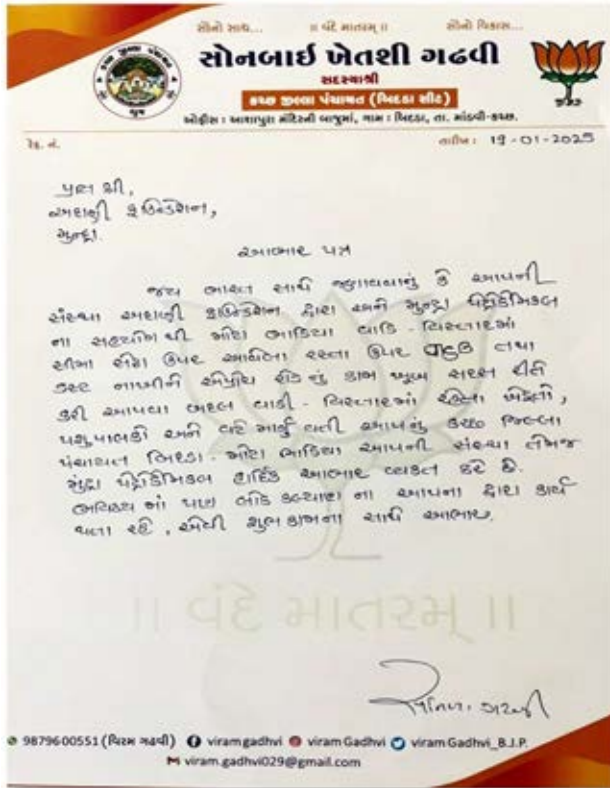 સૌનો સાથ... ॥ વંદે માતરમ્ ॥ સૌનો વિકાસ...
સોનબાઇ ખેતશી ગઢવી
સદસ્યાશ્રી
કચ્છ જીલ્લા પંચાયત (બિદડા સીટ)
ઓફીસ : આશાપુરા મંદિરની બાજુમાં, ગામ : બિદડા, તા. માંડવી-કચ્છ.
ભુજ
ભાજપ
રેફ. નં. તારીખ : 19-01-2025
પ્રતિ શ્રી,
અદાણી ફાઉન્ડેશન,
મુન્દ્રા
આભાર પત્ર
જય ભારત સાથે જણાવવાનું કે આપની
સંસ્થા અદાણી ફાઉન્ડેશન દ્વારા અને મુન્દ્રા પેટ્રોકેમિકલ
ના સહયોગ થી મોટા ભાડિયા વાડિ - વિસ્તારમાં
સીમા ઉપર આવેલા રસ્તા ઉપર તથા
નાખીને રોડ નું કામ ખુબ સરસ રીતે
કરી આપવા બદલ વાડી - વિસ્તારમાં રહેતા ખેડુતો,
પશુપાલકો અને વતી આપનું કચ્છ જિલ્લા
પંચાયત બિદડા - મોટા ભાડિયા આપની સંસ્થા તેમજ
મુંદ્રા પેટ્રોકેમિકલ હાર્દિક આભાર વ્યકત કરે છે.
ભવિષ્ય માં પણ લોક કલ્યાણ ના આપના દ્વારા કાર્ય
થતા રહે, એવી શુભકામના સાથે આભાર.
॥ વંદે માતરમ્ ॥
9879600551 (વિરમ ગઢવી) viramgadhvi viram Gadhvi viram Gadhvi_B.J.P.
viram.gadhvi029@gmail.com